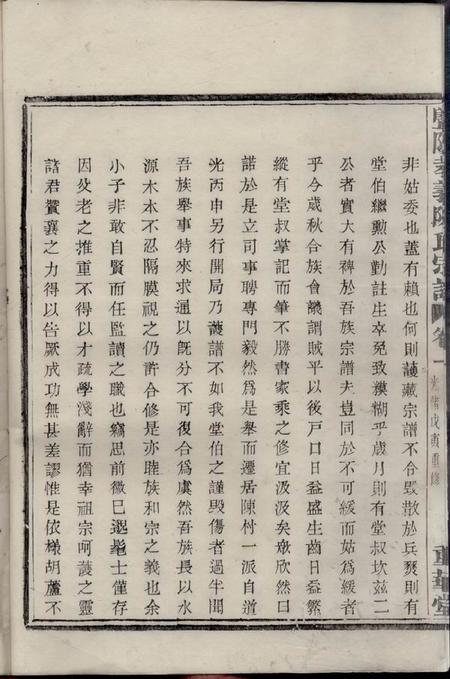 暨陽孝義陳氏宗譜 卷一 光緒戊寅重修 重華堂
非姑委也蓋有賴也何則護藏宗譜不令毀散於兵燹則有
堂伯繼勳公勤註生卒免致糢糊乎歲月則有堂叔坎茲二
公者實大有裨於吾族宗譜夫豈同於不可緩而姑為緩者
乎今歲秋合族會議謂賊平以後戶口日益盛生齒日益繁
縱有堂叔掌記而筆不勝書家乘之修宜汲汲矣墩欣然口
諾於是立司事聘專門毅然為是舉而遷居陳村一派自道
光丙申另行開局乃護譜不如我堂伯之謹毀傷者過半聞
吾族舉事特來求通以旣分不可復合為虞然吾族長以水
源木本不忍隔膜視之仍許合修是亦睦族和宗之義也余
小子非敢自賢而任監讀之職也竊思前徽已邈髦士僅存
因父老之推重不得以才疏學淺辭而猶幸祖宗呵護之靈
諸君贊襄之力得以告厥成功無甚差謬惟是依樣胡蘆不